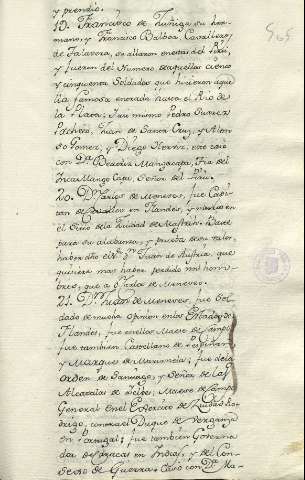 y prendio.
19. Francisco de Zuñiga su her-
mano, y Francisco Balboa Cavalleros
de Talavera, se allaron en estas del Piru,
y fueron del Numero de aquellos ciento
y cinquenta Soldados que hicieron aque
lla famosa entrada hasta el Rio de
la Plata: Iten mismo Pedro Suarez
Pacheco, Juan de Santa Cruz, y Alon-
so Gomez, y Diego
con Dª Beatriz Tia del
Inca Mango Capa, Señor del Piru.
20. Dⁿ Carlos de Meneses, fue Capi-
tan de Cavallos en Flandes, y murio en
el Sitio de la Ciudad de Mastrin. Baste
para su alabanza, y prueba de su valor
haber dho el Sr. Dⁿ Juan de Austria, que
quisiera mas haber perdido mil hom-
bres, que a Dⁿ Carlos de Meneses.
21. Dⁿ Juan de Meneses, fue Sol-
dado de mucha Opinion en los Estados de
Flandes, fue en ellos Maese de Campo
fue tambien Castellano de Perpiñan
y Marques de fue de la
orden de Santiago, y Señor de las
Alcazilas de Velez, Maese de Campo
General en el Exercito de Ciudad Ro-
drigo, con el Duque de Verganza
en Portugal; fue tambien Governa-
dor de en Indias, y del Con-
sejo de Guerra. Caso con Dª Ma-